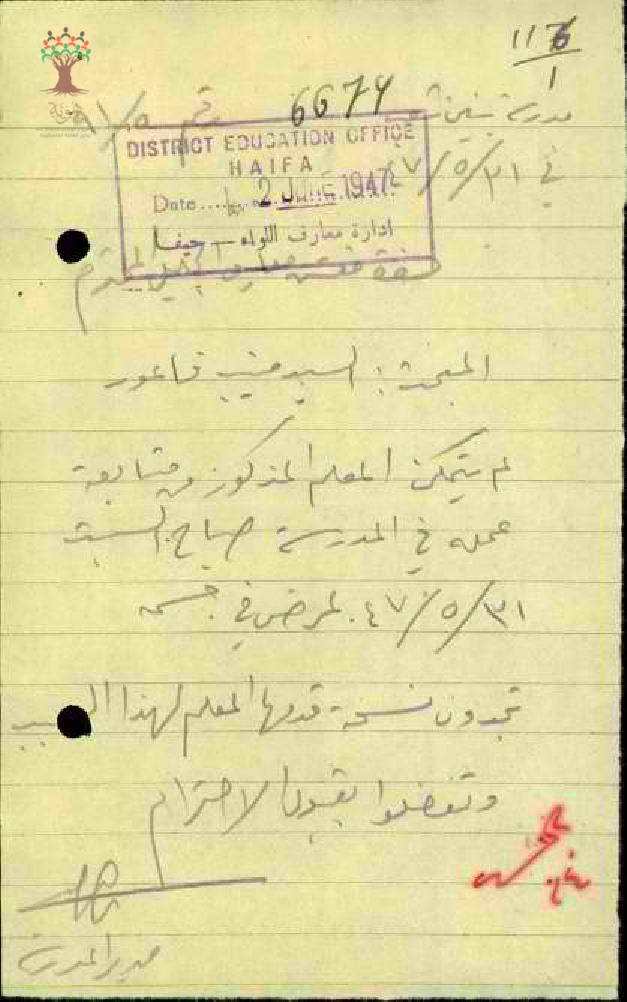 116
1
6674
مدرسة رقم ٩١/٥
في ٤٧/٥/٣١
DISTRICT EDUCATION OFFICE
HAIFA
Date 2 JUNE 1947
ادارة معارف اللواء - حيفا
حضرة المحترم
المبحث: السيد قاعور
لم يتمكن المعلم المذكور من متابعة
عمله في المدرسة صباح السبت
٤٧/٥/٣١ لمرض في جسمه
تجدون نسخة قدمها المعلم لهذا السبب
وتفضلوا بقبول الاحترام
مدير المدرسة